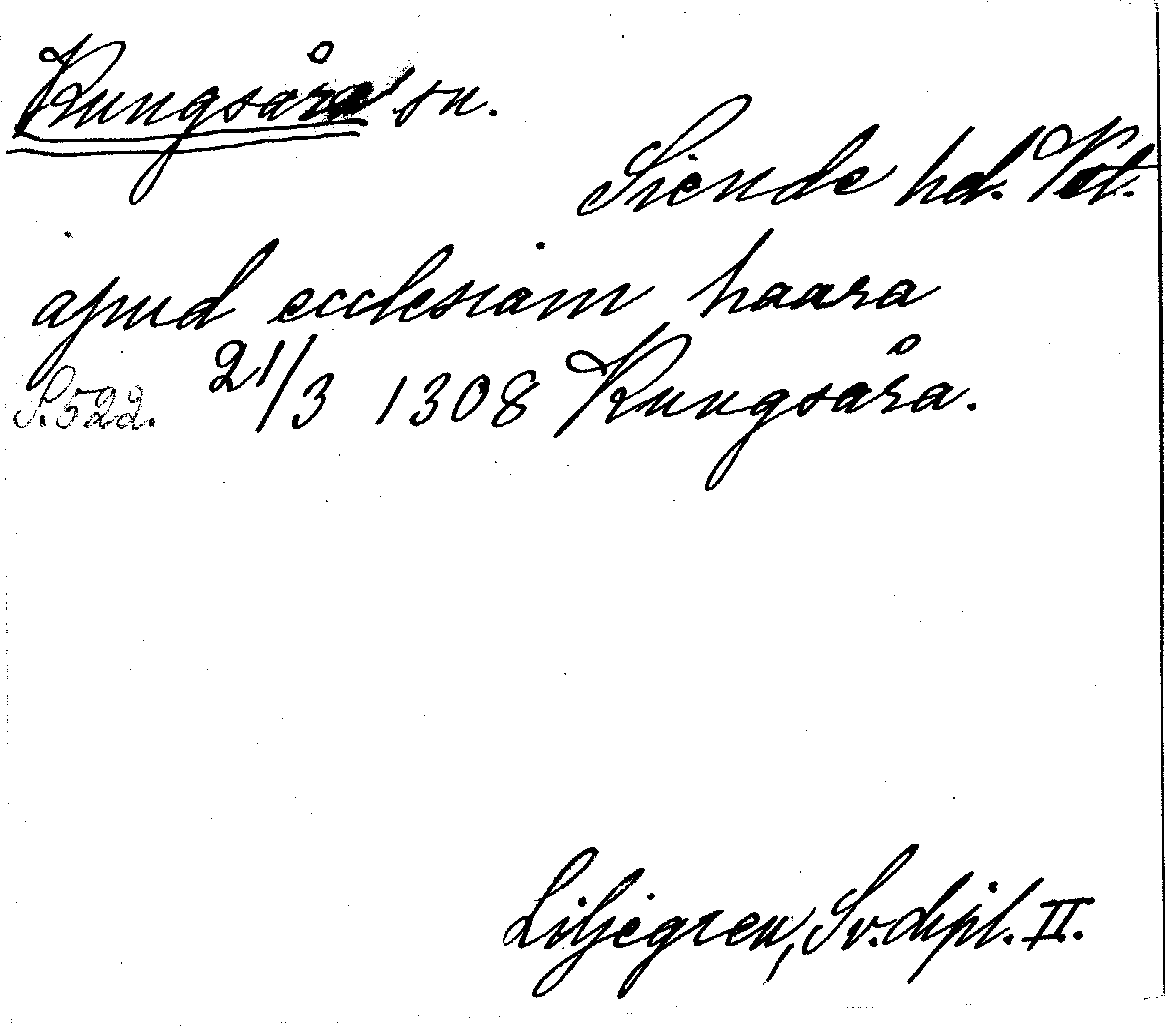 Kungsåra sn.
Siende hd. Vst.
apud ecclesiam haara
S. 522. 21/3 1308 Kungsåra.
Liljegren, Sv. dipl. II.